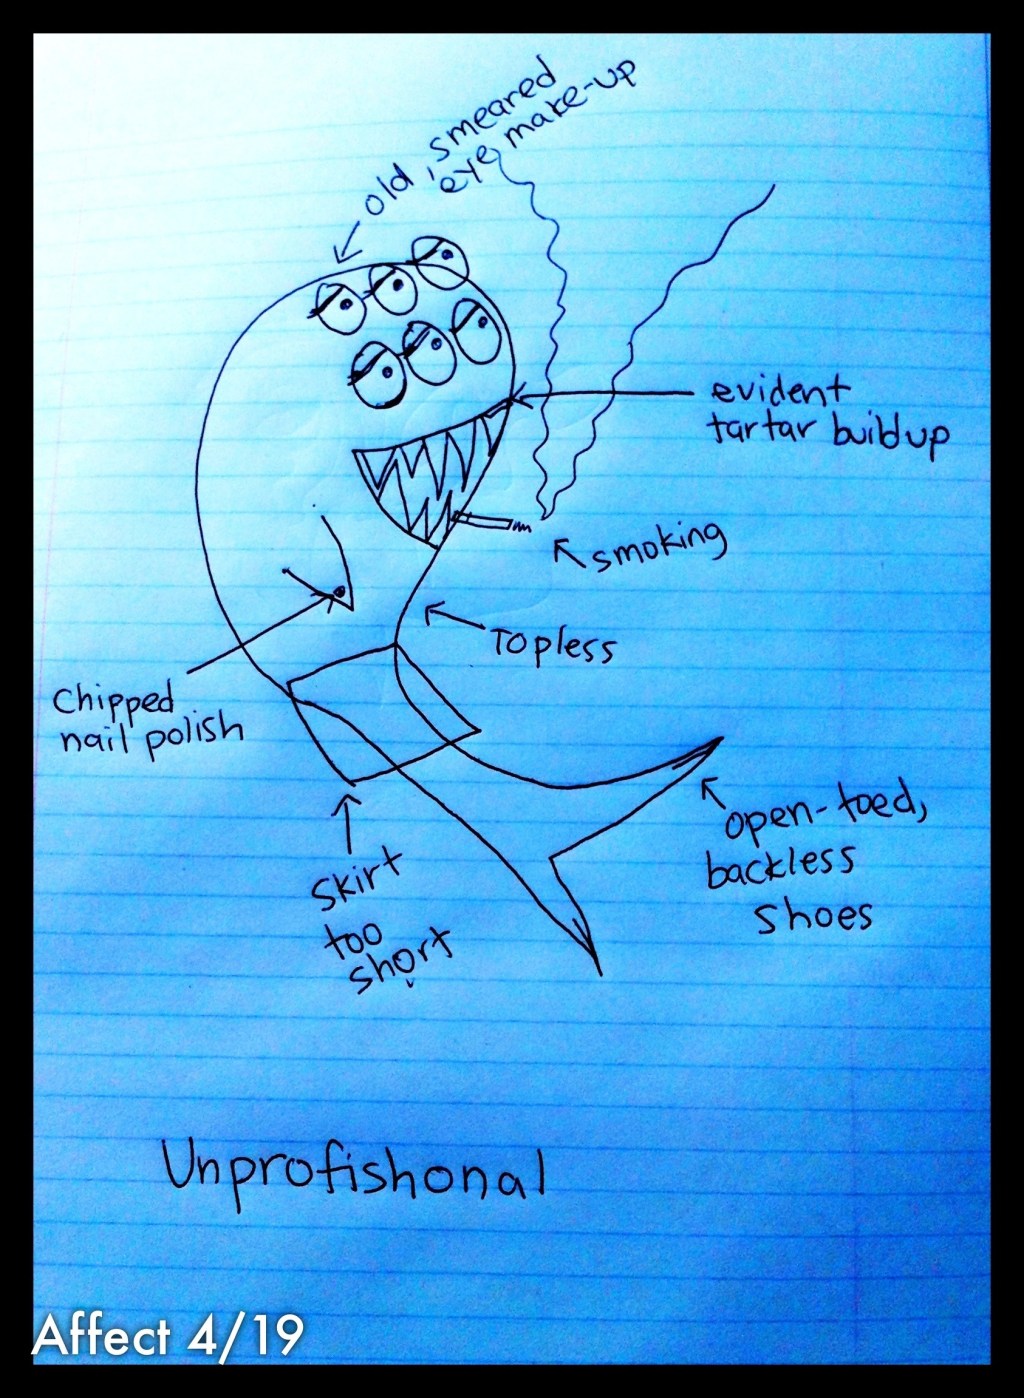 old, smeared
eye make-up
evident
tartar buildup
smoking
Topless
Chipped
nail polish
open-toed,
backless
shoes
skirt
too
short
Unprofishonal
Affect 4/19